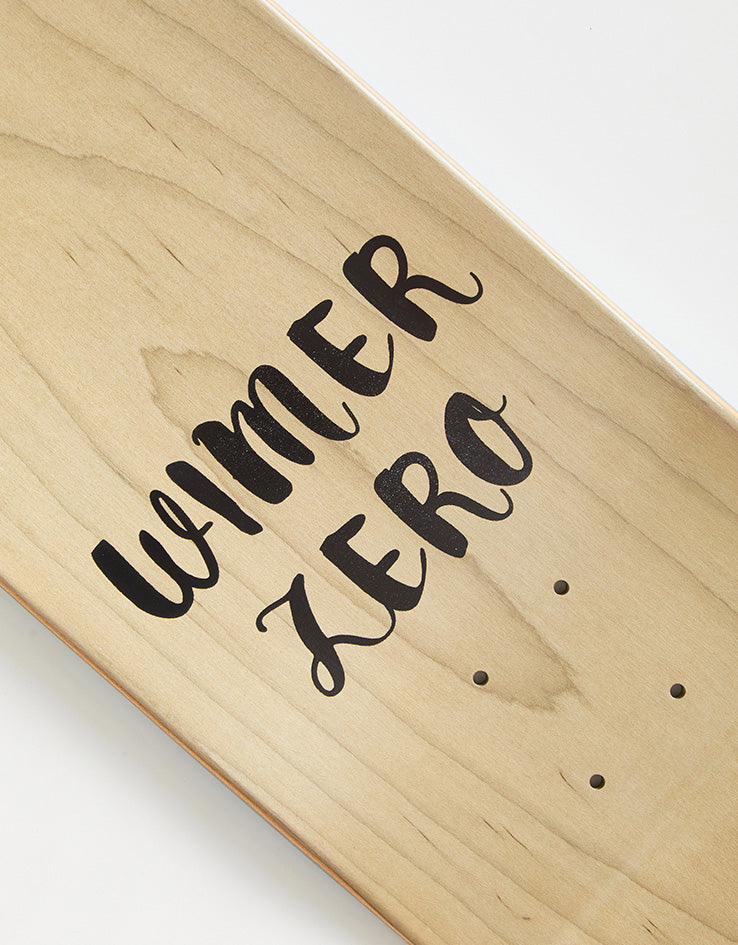 WIMER
ZERO